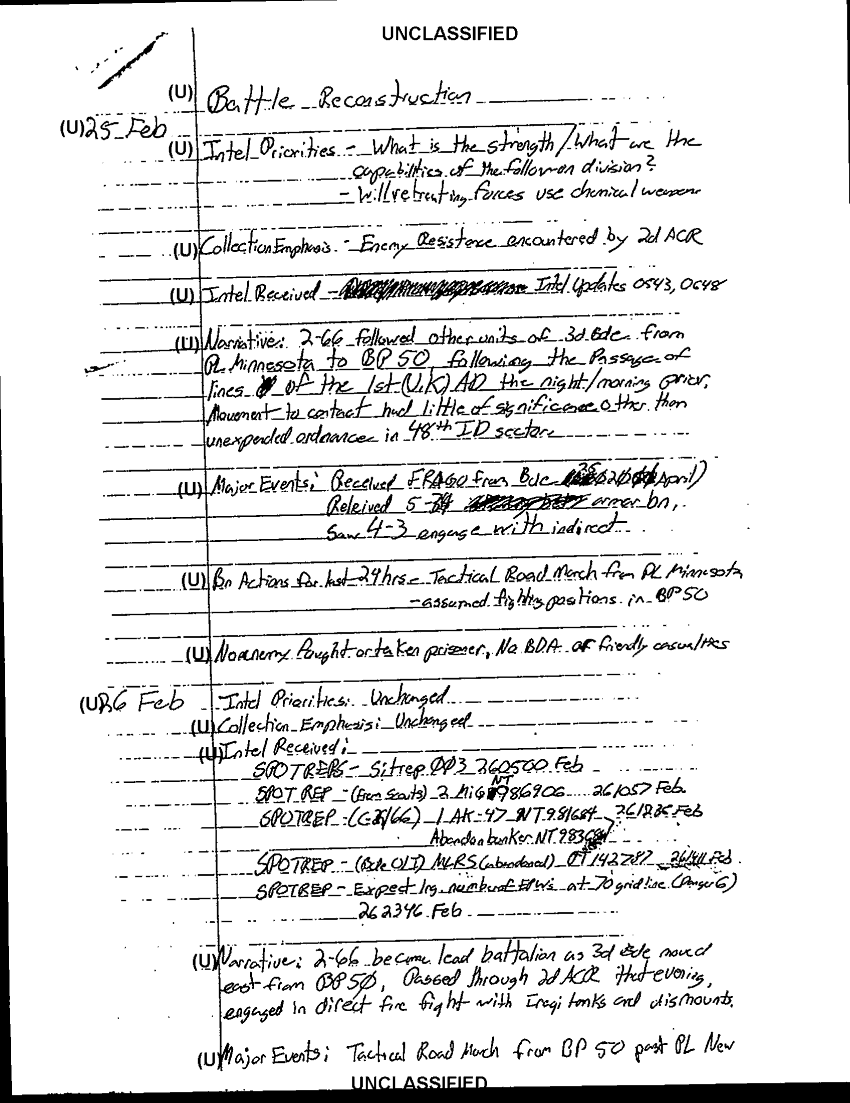 UNCLASSIFIED
(U) Battle Reconstruction
(U) 25 Feb
(U) Intel Priorities - What is the strength/What are the
capabilities of the follow on division?
- Will retreating forces use chemical weapons
(U) Collection Emphasis - Enemy Resistence encountered by 2d ACR
(U) Intel Received - Intel Updates 0543, 0648
(U) Narrative: 2-66 followed other units of 3d Bde from
PL Minnesota to BP 50 following the Passage of
lines of the 1st (U.K) AD the night/morning prior.
Movement to contact had little of significance other than
unexpended ordnances in 48th ID sector.
(U) Major Events: Received FRAGO from Bde April)
Releived 5- armor bn,
Saw 4-3 engage with indirect
(U) Bn Actions for last 24 hrs - Tactical Road March from PL Minnesota
- assumed fighting positions in BP 50
(U) No enemy fought or taken prisoner, No BDA or friendly casualties
(U) 26 Feb Intel Priorities: Unchanged
(U) Collection Emphasis: Unchanged
(U) Intel Received:
SPOTREPS - Sitrep 003 260500 Feb
SPOT REP - ( Scouts) 2 MiG NT 986906 261057 Feb.
SPOTREP - ( /66) 1 AK-47 NT 981684 261235 Feb
Abandon bunker NT
SPOTREP - (Bde ) MLRS (abandoned) 142787 Feb
SPOTREP - Expect lrg. number of EPWs at 70 grid line (Danger 6)
262346 Feb
(U) Narrative: 2-66 became lead battalion as 3d Bde moved
east from BP 50, Passed through 2d ACR that evening,
engaged in direct fire fight with Iraqi tanks and dismounts.
(U) Major Events: Tactical Road March from BP 50 past PL New
UNCLASSIFIED